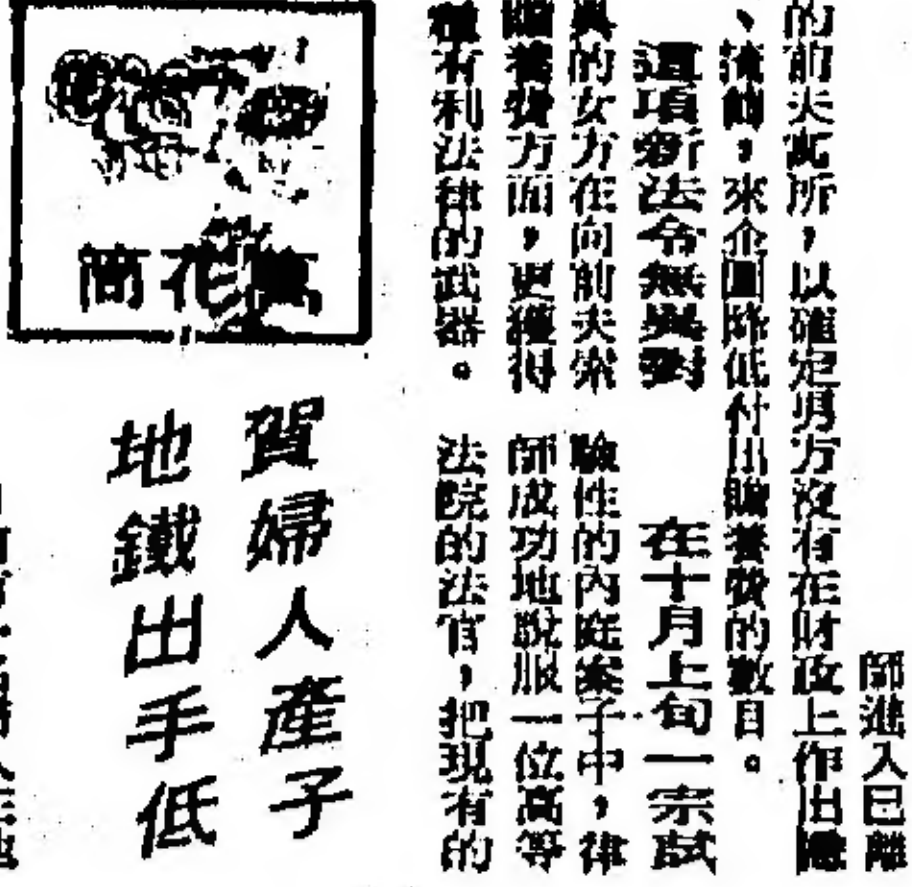 師進入已離
的前夫寓所，以確定男方沒有在財政上作出
，來企圖降低付出贍養費的數目。
這項新法令無異對
異的女方在向前夫索
贍養費方面，更獲得
種有利法律的武器。
在十月上旬一宗試
驗性的內庭案子中，律
師成功地說服一位高等
法院的法官，把現有的
萬花筒
賀婦人產子
地鐵出手低